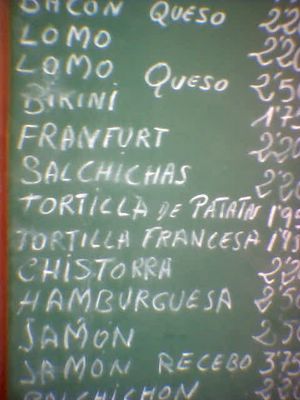 BACON QUESO 2'20
LOMO 2'20
LOMO QUESO 2'50
BIKINI 1'75
FRANFURT 2'20
SALCHICHAS 2'20
TORTILLA DE PATATA
TORTILLA FRANCESA
CHISTORRA
HAMBURGUESA 2'50
JAMÓN 2'50
JAMON RECEBO 3'75
SALCHICHON 2'20